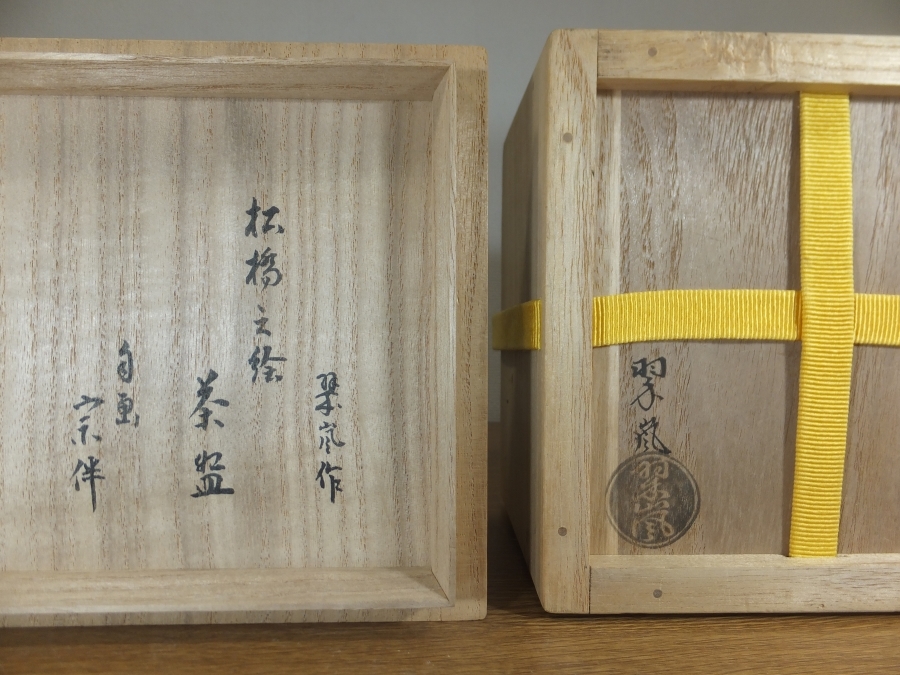 翠嵐作
松橋之絵
茶盌
自画
宗伴
翠嵐
翠嵐